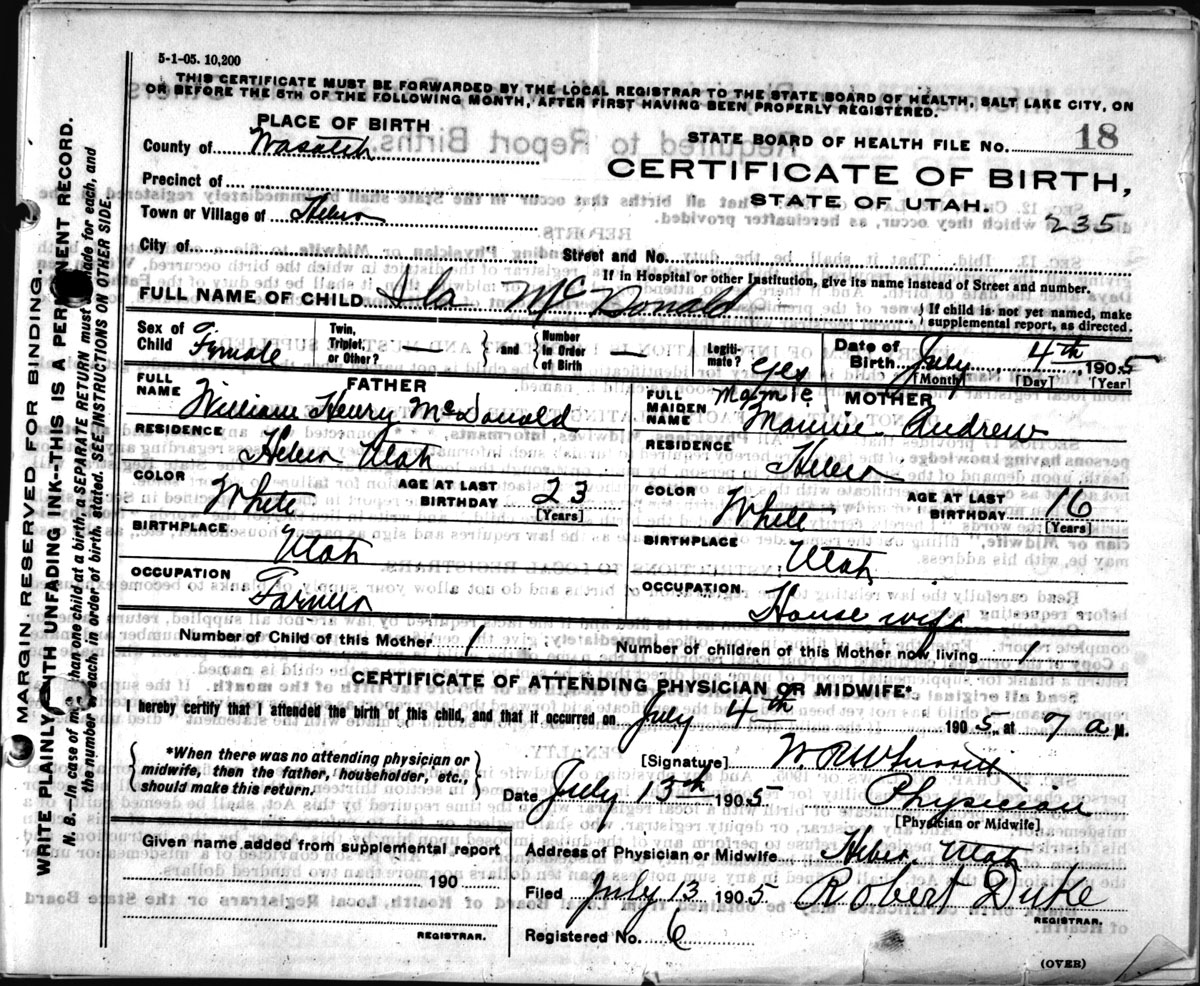 5-1-05. 10,200
THIS CERTIFICATE MUST BE FORWARDED BY THE LOCAL REGISTRAR TO THE STATE BOARD OF HEALTH, SALT LAKE CITY, ON
OR BEFORE THE 5TH OF THE FOLLOWING MONTH, AFTER FIRST HAVING BEEN PROPERLY REGISTERED.
PLACE OF BIRTH
STATE BOARD OF HEALTH FILE No. 18
County of Wasatch
CERTIFICATE OF BIRTH,
Precinct of
STATE OF UTAH.
Town or Village of Heber
235
City of Street and No.
If in Hospital or other Institution, give its name instead of Street and number.
FULL NAME OF CHILD Ila McDonald
If child is not yet named, make
supplemental report, as directed.
Sex of Child Female
Twin, Triplet, or Other? —
and Number in Order of Birth —
Legiti- mate? Yes
Date of Birth July 4th, 1905
[Month] [Day] [Year]
FATHER
FULL NAME William Henry McDonald
MOTHER
FULL MAIDEN NAME Mamie Andrew
Mamie
RESIDENCE Heber Utah
RESIDENCE Heber
COLOR White AGE AT LAST BIRTHDAY 23
[Years]
COLOR White AGE AT LAST BIRTHDAY 16
[Years]
BIRTHPLACE Utah
BIRTHPLACE Utah
OCCUPATION Farmer
OCCUPATION House wife
Number of Child of this Mother 1
Number of children of this Mother now living 1
CERTIFICATE OF ATTENDING PHYSICIAN OR MIDWIFE*
I hereby certify that I attended the birth of this child, and that it occurred on July 4th 1905, at 7 a M.
*When there was no attending physician or
midwife, then the father, householder, etc.,
should make this return.
[Signature] W. R.
Date July 13th 1905 Physician
[Physician or Midwife]
Given name added from supplemental report
190
REGISTRAR.
Address of Physician or Midwife Heber, Utah
Filed July 13 1905 Robert Duke
REGISTRAR.
Registered No. 6
(OVER)
MARGIN. RESERVED FOR BINDING.
WRITE PLAINLY WITH UNFADING INK-THIS IS A PERMANENT RECORD.
N. B.—In case of more than one child at a birth, a SEPARATE RETURN must be made for each, and
the number of each, in order of birth, stated. SEE INSTRUCTIONS ON OTHER SIDE.